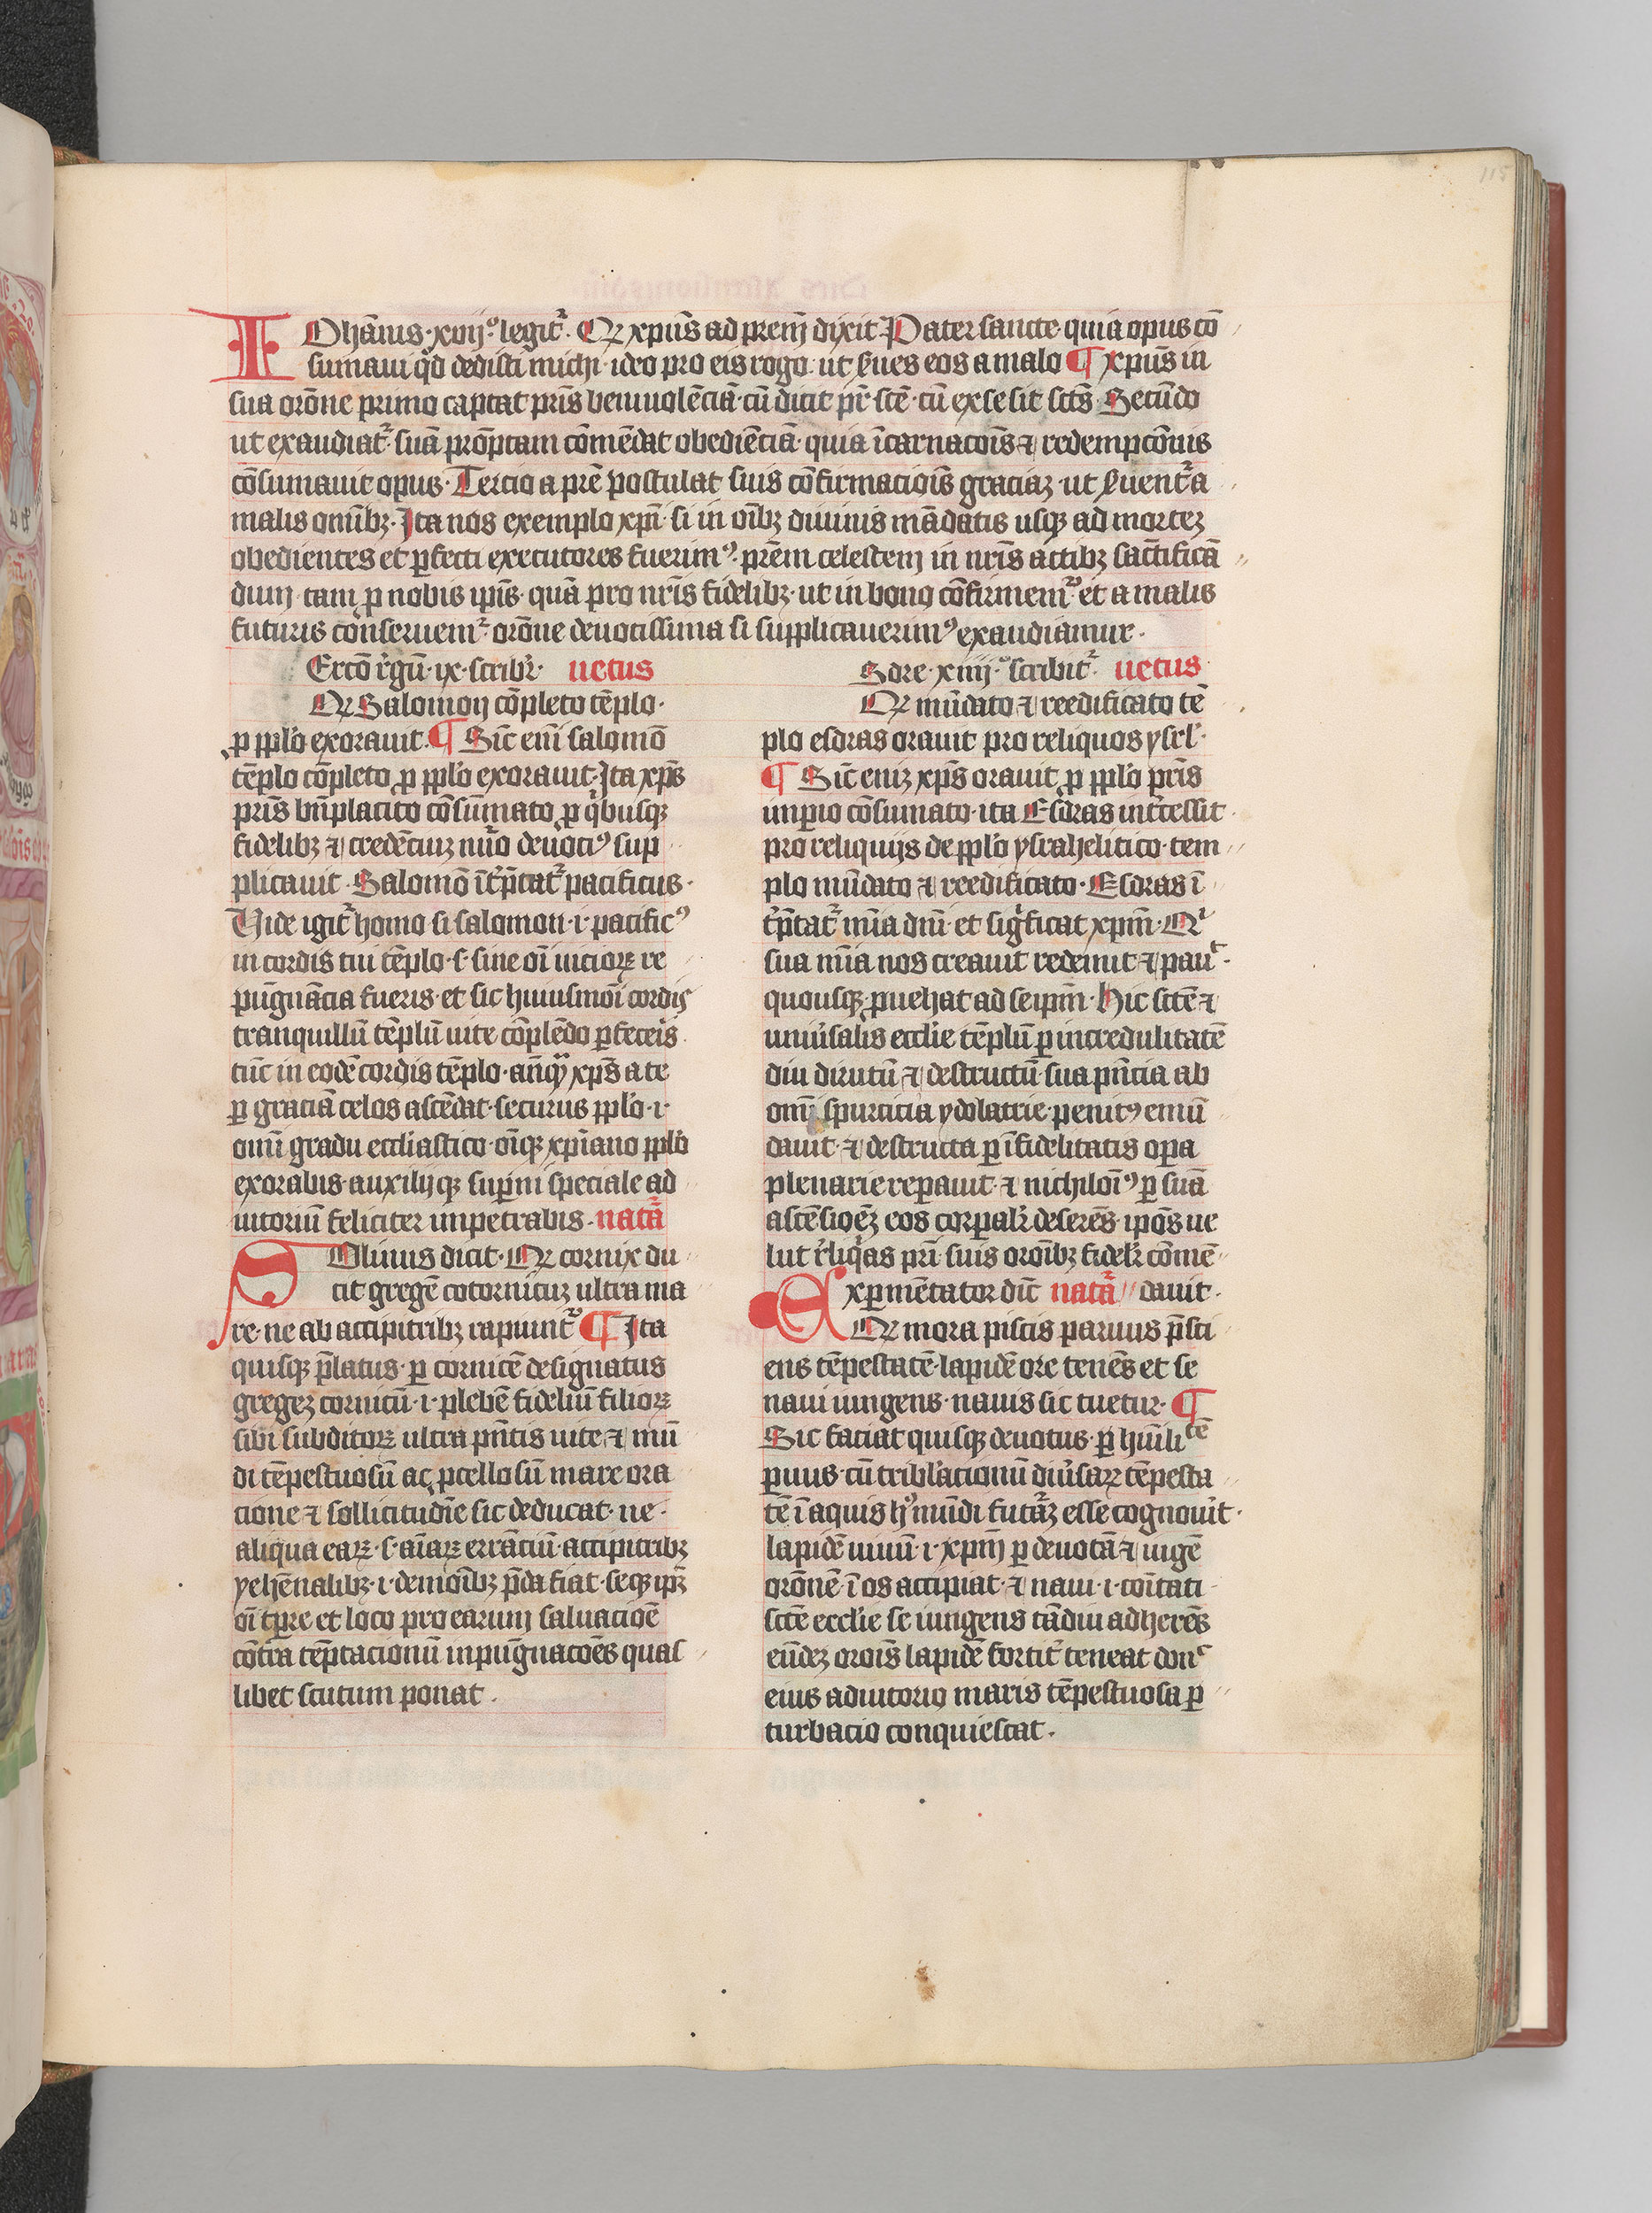 IOhānis·xvij°·legit᷑·Qꝫ xpūs ad prem dixit·Pater sancte·quia opus cō
sumaui qd̄ dedisti michi·ideo pro eis rogo·ut s̄ues eos a malo ¶ xpūs in
sua orōne primo captat pris̄ beniuolēciā·cū dicit pr̄ scē·cū ex se sit scs̄·Secūdo
ut exaudiat᷑·suā prōptam cōmēdat obediēciā·quia īcarnacois̄ ⁊ redempcōnis
cōsumauit opus·Tercio a prē postulat suis cōfirmaciois̄ graciaꝫ·ut s̄uent᷑ a
malis omībꝫ·Ita nos exemplo xpī·si in oībꝫ diuinis mādatis usqꝫ ad morteꝫ
obedientes et ꝑfecti executores fuerimꝰ·prēm celestem in nrīs actibꝫ sāctificā
dum·tam ꝓ nobis ipīs·quā pro nrīs fidelibꝫ·ut in bono cōfirmem᷑ et a malis
futuris cōnseruem᷑·orōne deuotissima si supplicauerimꝰ exaudiamur·
Ercō rēgū·ix·scribr᷑· uetus
Qꝫ Salomon cōpleto tēplo·
ꝓ pplo exorauit·¶ Sic̄ enī salomō
tēplo cōpleto ꝓ pplo exorauit·Ita xpūs
pris̄ bn̄placito cōsūmato ꝓ qibusqꝫ
fidelibꝫ ⁊ credēciuꝫ nūo deuociꝰ sup
plicauit·Salomō īt᷑p̄tat᷑ pacificus·
Vide igit᷑ homo si salomon·i·pacificꝰ
in cordis tui tēplo·s·sine oī uicioꝝ re
pūgnācia fueris·et sic huiusmōi cordis
tranquillū tēplū uite cōplēdo ꝑfeceris
tūc in eodē cordis tēplo·anq̄ꝫ xps̄ a te
ꝑ graciā celos ascēdat·securus pplo·i·
omī gradu eccl̄iastico·oīqꝫ xpīano pplo
exorabis·auxilijqꝫ suꝑni speciale ad
iutoriū feliciter impetrabis·natā᷑
SOlinus dicit·Qꝫ cornix du
cit gregē coturnicuꝫ ultra ma
re·ne ab accipitribꝫ rapiunt᷑ ¶ Ita
quisqꝫ p̄latus·ꝑ cornicē designatus
gregeꝫ cornicū·i·plebē fideliū filioꝝ
sibi subditoꝝ ultra pn̄tis uite ⁊ mū
di tēpestuosū ac ꝓcellosū mare ora
cione ⁊ sollicitudīe sic deducat·ne
aliqua eaꝝ·s·aīaꝝ errāciū·accipitribꝫ
yehēnalibꝫ·i·demoībꝫ p̄da fiat·seqꝫ ipꝫ
oī tꝑre et loco pro earum saluacioē
cōtra tēptacionū inpūgnacōēs qual
libet scutum ponat·
Sdre·xiiij·°scribit᷑· uetus·
Qꝫ mūdato ⁊ reedificato tē
plo esdras orauit pro reliquos ysrl̄·
¶ Sic̄ eniꝫ xps̄ orauit ꝓ pplo pris̄
imꝑio cōsumato·ita Esdras int̄cessit
pro reliquijs de pplo ysrahelitico·tem
plo mūdato ⁊ reedificato·Esdras ī
t᷑p̄tat᷑ mīa dnī·et sigficat xpm̄·Qꝫ
sua mīa nos creauit redemit ⁊ pauit·
quousqꝫ ꝓuehat ad seipm̄·Hic scte ⁊
uniūsalis ecclīe tēplū ꝑ incredulitatē
diu dirutū ⁊ destructū·sua pn̄cia ab
omī spurticia ydolatrie·penitꝰ emū
dauit·⁊ destructa ꝑ īfidelitatis oꝑa
plenarie reꝑauit·⁊ nichiloīꝰ ꝑ suā
ascēsioēꝫ eos corꝑalr̄ deserēs·ipōs ue
lut rēliqas prī·suis oroībꝫ fidelr̄ cōmē
Exꝑmētator dic̄ natā᷑ // dauit·
Qꝫ mora piscis paruus p̄sci
ens tēpestatē·lapidē ore tenēs et se
naui iungens·nauis sic tuetur·¶
Sic faciat quisqꝫ deuotus·ꝑ humīlitē
ꝑuus·cū tribl̄acionū diūsaꝝ tēpesta
tē ī aquis hꝰ mūdi futāꝫ esse cognouīt·
lapidē uiuū·i·xpm̄ ꝑ deuotā ⁊ uigē
orōnē·ī os accipiat·⁊ naui·i·coītati
scte ecclīe se iungens tādiu adherēs
eūdeꝫ orois̄ lapidē fortit᷑ teneat donc
eius adiutorio maris tēpestuosa ꝑ
turbacio conquiescat·